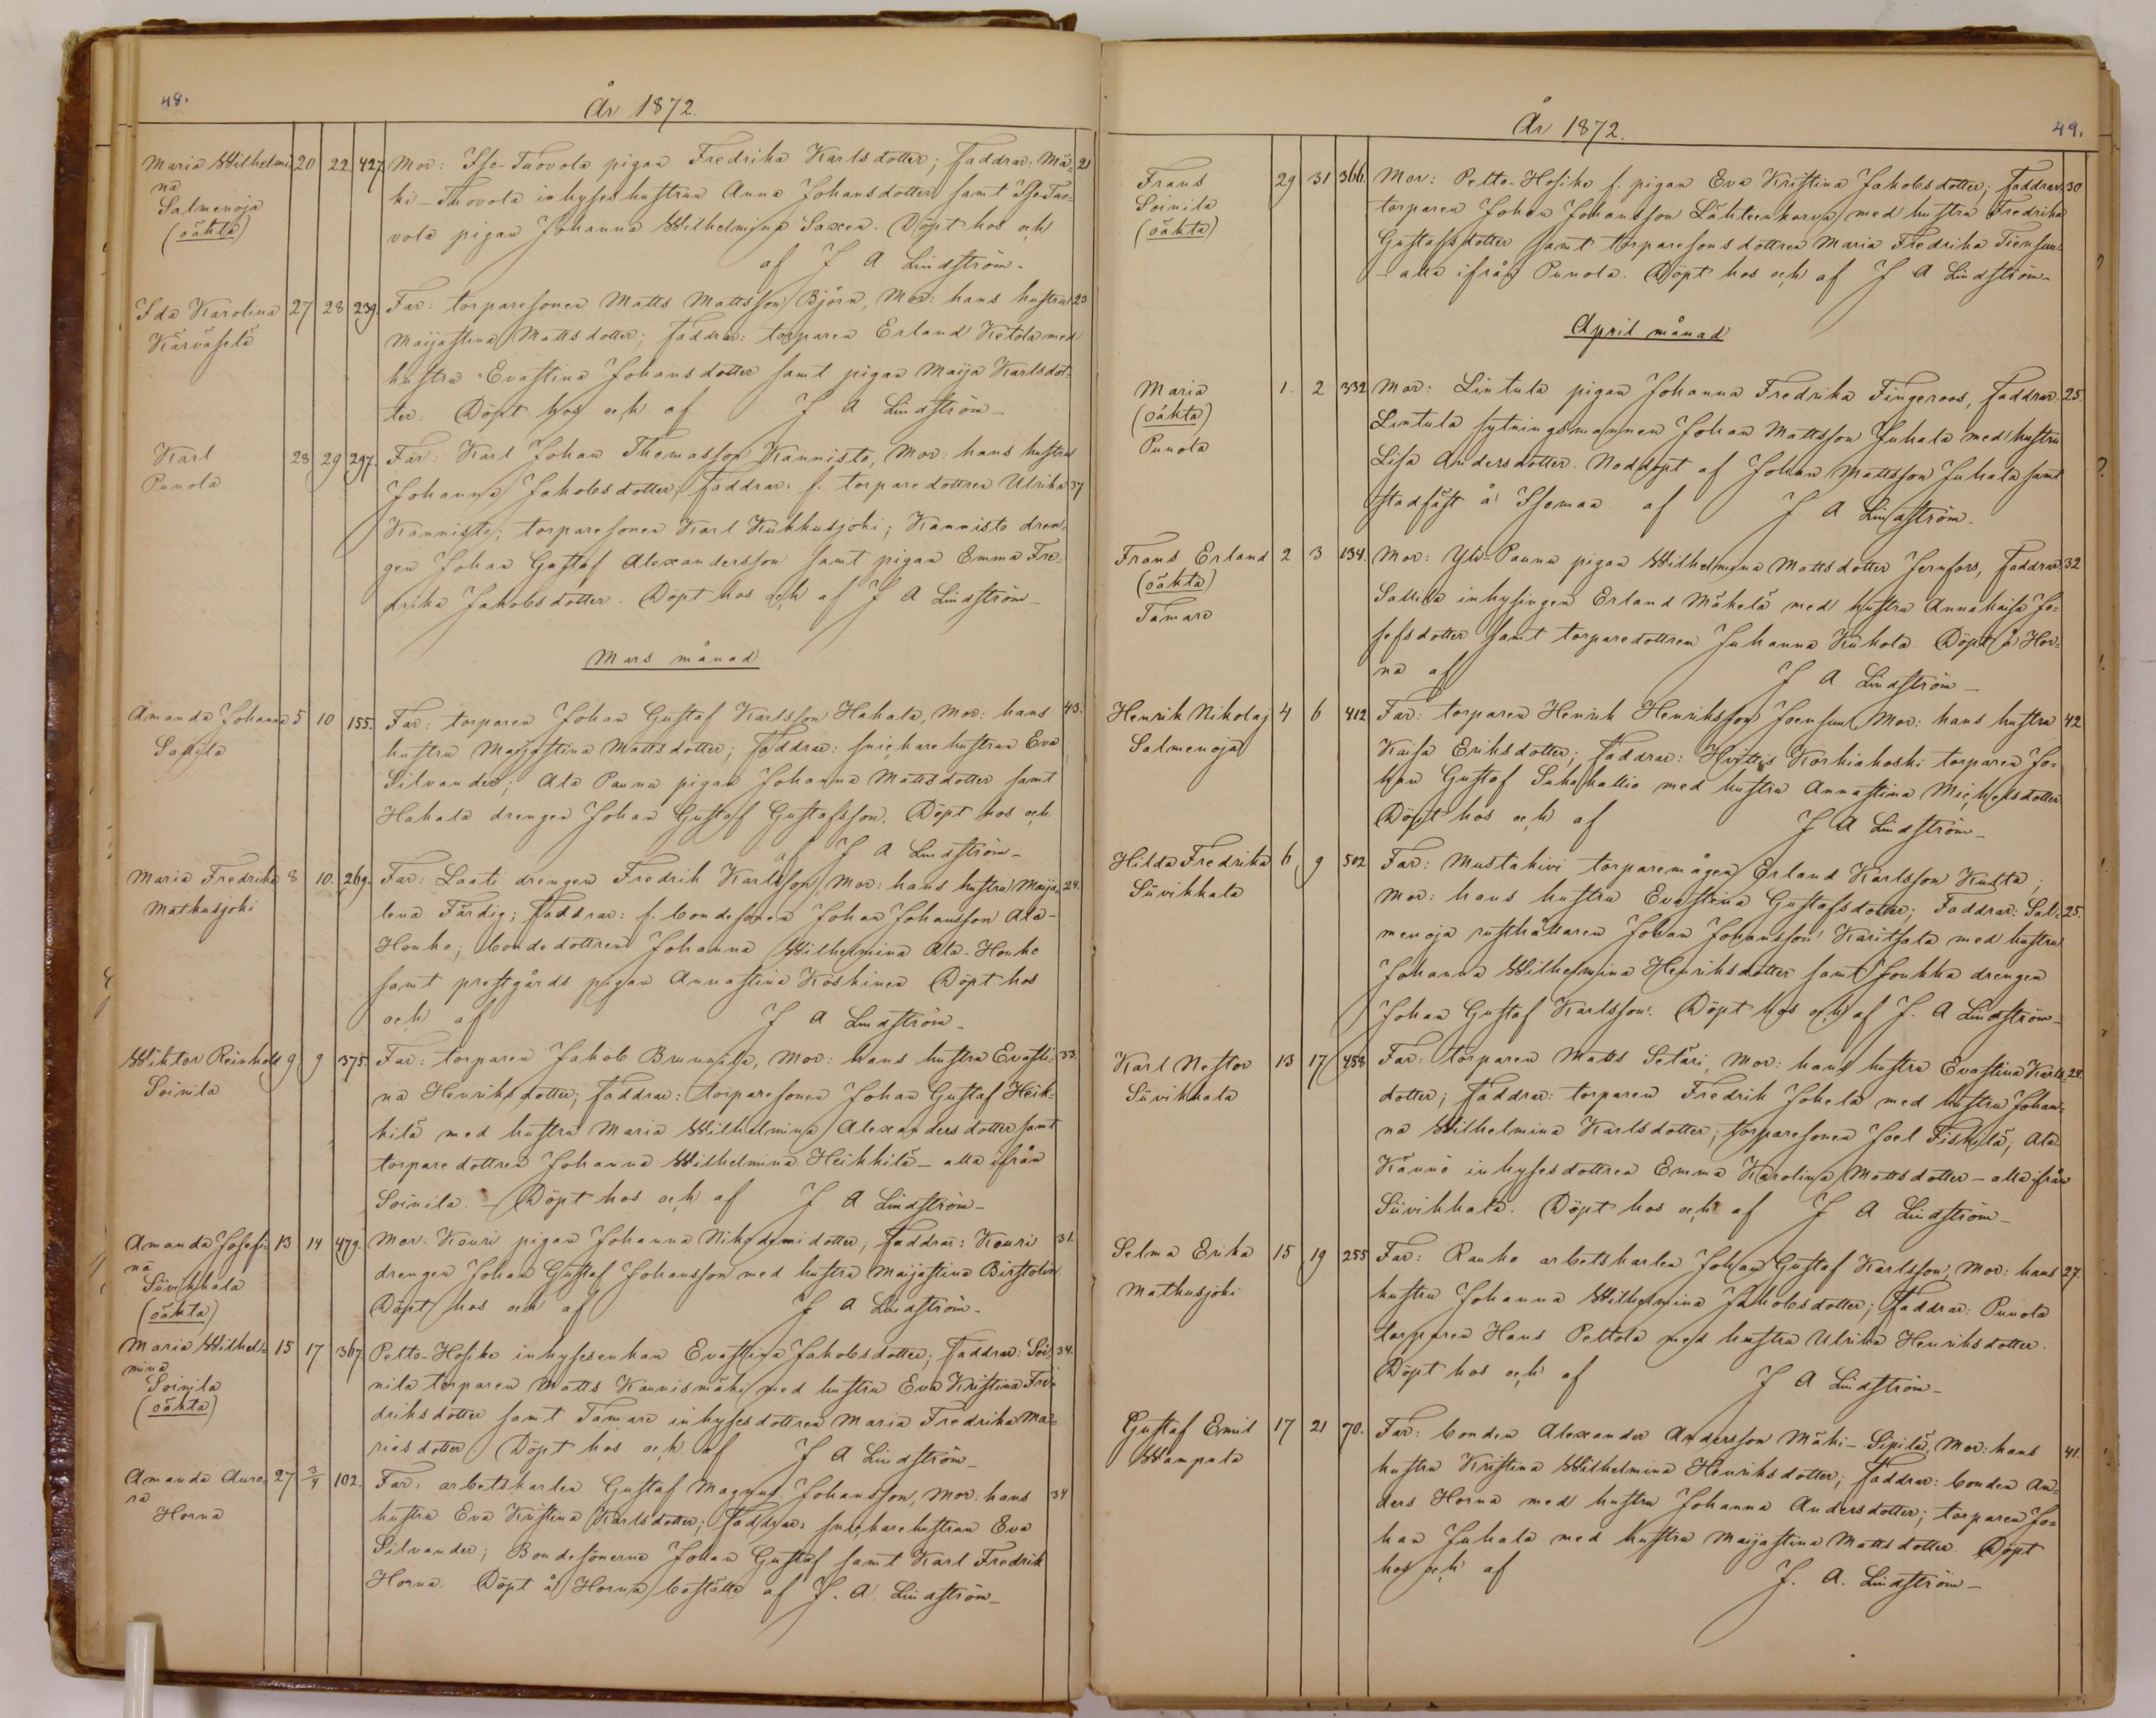 48.
År 1872.
Maria Wilhelmi 20 22 427. Mor: Iso-Tuovola pigan Fredrika Karlsdotter; faddrar: Mä- 21
na
Salmenoja
(oäkta)
ki-Tuovola inhyseshustrun Anna Johansdotter samt Iso-Tuo-
vola pigan Johanna Wilhelmina Saxen. Döpt hos och
af J A Lindström-
Ida Karolina 27 28 239. Far: torparesonen Matts Mattsson Björn, Mor: hans hustru 23
Kärväselä
Maijastina Mattsdotter; faddrar: torparen Erland Ketola med
hustru Evastina Johansdotter samt pigan Maija Karlsdot-
ter. Döpt hos och af J A Lindström-
Karl 28 29 297. Far: Karl Johan Thomasson Kannisto, Mor: hans hustru
Punola
Johanna Jakobsdotter; faddrar: f. torparedottren Ulrika 37
Kannisto; torparesonen Karl Kuhkusjoki; Kannisto dren-
gen Johan Gustaf Alexandersson samt pigan Emma Fre-
drika Jakobsdotter. Döpt hos och af J A Lindström-
Mars månad
Amanda Johanna 5 10 155. Far: torparen Johan Gustaf Karlsson Hakala, Mor: hans 43.
Sallila
hustru Maijastina Mattsdotter; faddrar: snickarehustrun Eva
Silvander; Ala Pauna pigan Johanna Mattsdotter samt
Hakala drengen Johan Gustaf Gustafsson. Döpt hos och
af J A Lindström-
Maria Fredrika 8 10. 269. Far: Laati drengen Fredrik Karlsson, Mor: hans hustru Maija- 24.
Mathusjoki
lena Färdig; faddrar: f. bondesonen Johan Johansson Ala-
Honko; bondedottren Johanna Wilhelmina Ala-Honko
samt prestgårds pigan Annastina Koskinen. Döpt hos
och af J A Lindström-
Wiktor Reinhold 9 9 375. Far: torparen Jakob Brunnila, Mor: hans hustru Evasti- 33.
Soinila
na Henriksdotter; faddrar: torparesonen Johan Gustaf Heik-
kilä med hustru Maria Wilhelmina Alexandersdotter samt
torparedottren Johanna Wilhelmina Heikkilä - alla ifrån
Soinila. - Döpt hos och af J A Lindström-
Amanda Josefi- 13 14 479. Mor: Kouri pigan Johanna Nikodemidotter, faddrar: Kouri 31.
na
Suvikkala
(oäkta)
drengen Johan Gustaf Johansson med hustru Maijastina Birstolin
Döpt hos och af J A Lindström-
Maria Wilhel- 15 17 367. Pelto-Hosike inhysesenkan Evastina Jakobsdotter; Faddrar: Soi- 34.
mina
Soinila
(oäkta)
nila torparen Matts Kaunismäki med hustru Eva Kristina Fre-
driksdotter samt Tamare inhysesdottren Maria Fredrika Ma-
riasdotter Döpt hos och af J A Lindström-
Amanda Auro- 27 3/4 102. Far: arbetskarlen Gustaf Magnus Johansson, Mor: hans 34
ra
Horna
hustru Eva Kristina Karlsdotter; faddrar: snickarehustrun Eva
Silvander; Bondesönerna Johan Gustaf samt Karl Fredrik
Horna. Döpt å Horna boställe af J. A. Lindström-
År 1872.
49.
Frans 29 31 366. Mor: Pelto-Hosike f. pigan Eva Kristina Jakobsdotter; Faddrar: 30
Soinila
(oäkta)
torparen Johan Johansson Lähteenkorva med hustru Fredrika
Gustafsdotter samt torparesonsdottren Maria Fredrika Tiensuu
- alla ifrån Punola. Döpt hos och af J A Lindström-
April månad
Maria 1. 2 332 Mor: Lintula pigan Johanna Fredrika Fingeroos, faddrar: 25.
(oäkta)
Punola
Lintula sytningsmannen Johan Mattsson Juhala med hustru
Lisa Andersdotter. Nöddöpt af Johan Mattsson Juhala samt
stadfäst å Isomaa af J A Lindström-
Frans Erland 2 3 134. Mor: Yli-Pauna pigan Wilhelmina Mattsdotter Jernfors, Faddrar: 32
(oäkta)
Tamare
Sallila inhysingen Erland Mäkelä med hustru Annakaisa Jo-
sefsdotter samt torparedottren Johanna Kukola. Döpt å Hor-
na af J A Lindström-
Henrik Nikolaj 4 6 412 Far: torparen Henrik Henriksson Joensuu, Mor: hans hustru 42
Salmenoja
Kaisa Eriksdotter; faddrar: Hvittis Korkiakoski torparen Jo-
han Gustaf Sukokallio med hustru Annastina Michelsdotter.
Döpt hos och af J A Lindström-
Hilda Fredrika 6 9 502 Far: Mustakivi torparemågen Erland Karlsson Kutta;
Suvikkala
Mor: hans hustru Evastina Gustafsdotter; Faddrar: Sal- 25.
menoja rusthållaren Johan Johansson Karitsala med hustru
Johanna Wilhelmina Henriksdotter samt Joukka drengen
Johan Gustaf Karlsson. Döpt hos och af J. A Lindström-
Karl Nestor 13 17 458 Far: torparen Matts Setäri, Mor: hans hustru Evastina Karls- 24.
Suvikkala
dotter; faddrar: torparen Fredrik Jokela med hustru Johan-
na Wilhelmina Karlsdotter; torparesonen Joel Fiskilä; Ala
Kännö inhysesdottren Emma Karolina Mattsdotter - alla ifrån
Suvikkala. Döpt hos och af J A Lindström-
Selma Erika 15 19 255 Far: Rauko arbetskarlen Johan Gustaf Karlsson, Mor: hans 27.
Mathusjoki
hustru Johanna Wilhelmina Jakobsdotter; faddrar: Punola
torparen Hans Peltola med hustru Ulrika Henriksdotter.
Döpt hos och af J A Lindström-
Gustaf Emil 17 21 70. Far: bonden Alexander Andersson Mäki-Sipilä, Mor: hans 41.
Wampula
hustru Kristina Wilhelmina Henriksdotter; faddrar: bonden An-
ders Horna med hustru Johanna Andersdotter; torparen Jo-
han Juhala med hustru Maijastina Mattsdotter. Döpt
hos och af J. A. Lindström-